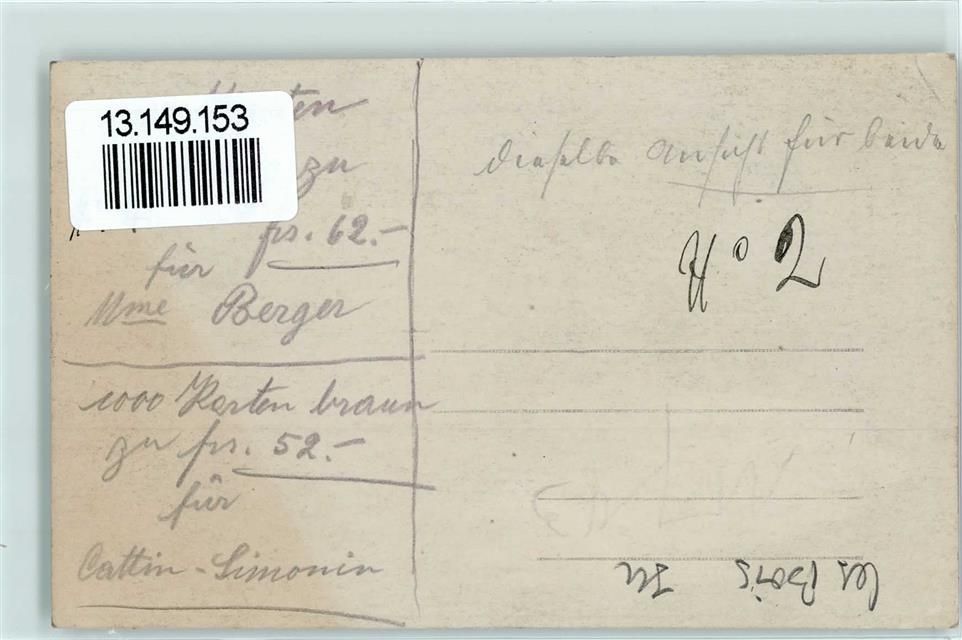 13.149.153
zu
frs. 62.–
für
Mme Berger
1000 Karten braun
zu frs. 52.–
für
Cattin-Simonin
dieselbe Ansicht für beide
Les Bois